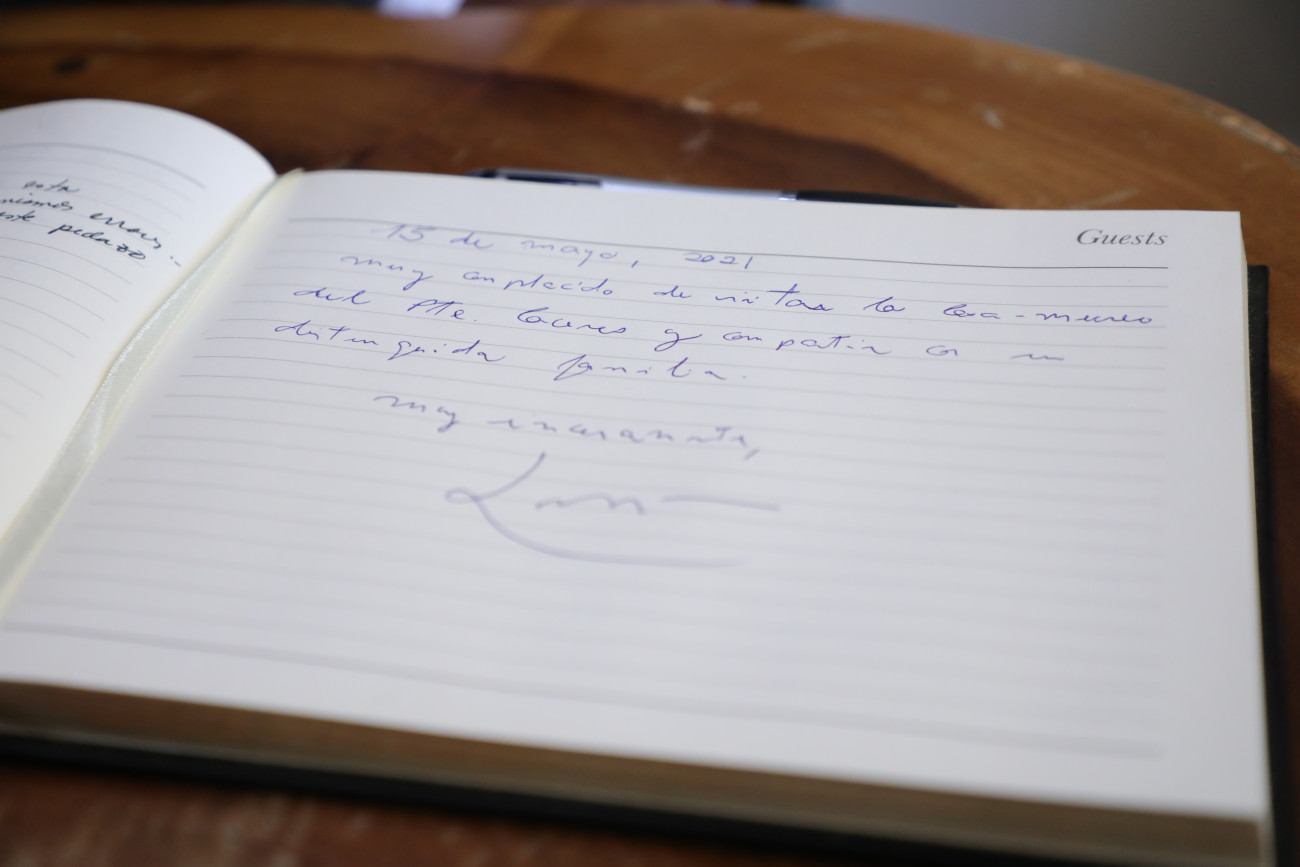 esta
errores..
este pedazo
Guests
15 de mayo, 2021
muy complacido de visitar la Casa-museo
del Pte. Cáceres y compartir con su
distinguida familia.
muy